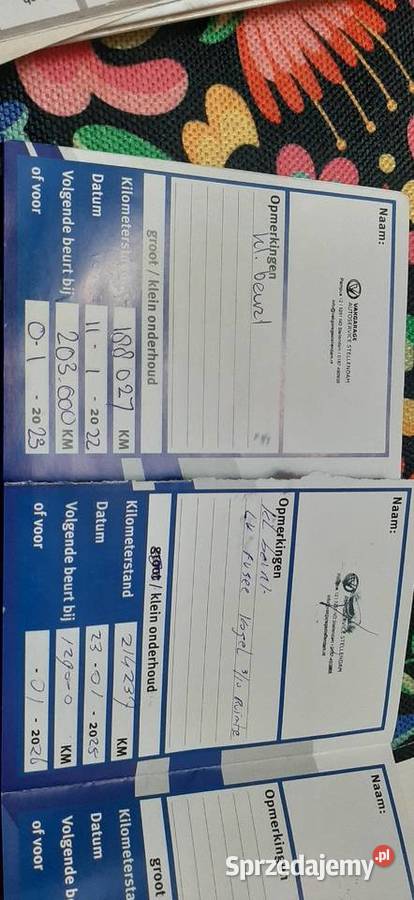 Naam:
VAKGARAGE
AUTOSERVICE STELLENDAM
Opmerkingen
kl. beurt
groot / klein onderhoud
Kilometerstand 188027 KM
Datum 11 - 1 - 2022
Volgende beurt bij 203.600 KM
of voor 0-1 - 2023
Naam:
VAKGARAGE
AUTOSERVICE STELLENDAM
Opmerkingen
kl beurt.
fusee kogel
ruimte
groot / klein onderhoud
Kilometerstand 214239 KM
Datum 23 - 01 - 2025
Volgende beurt bij KM
of voor - 01 - 2026
Naam:
Opmerkingen
groot
Kilometersta
Datum
Volgende be
of voor
Sprzedajemy.pl